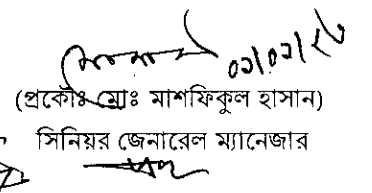 ০২/০২/২৬
(প্রকৌঃ মোঃ মাশফিকুল হাসান)
সিনিয়র জেনারেল ম্যানেজার